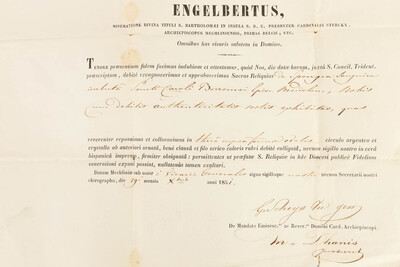 ENGELBERTUS,
MISERATIONE DIVINA TITULI S. BARTHOLOMÆI IN INSULA S. R. E. PRESBYTER CARDINALIS STERCKX,
ARCHIEPISCOPUS MECHLINIENSIS, PRIMAS BELGII, ETC.
Omnibus has visuris salutem in Domino.
Tenore præsentium fidem facimus indubiam et attestamur, quod Nos, die dato harum, juxtà S. Concil. Trident.
præscriptum, debitè recognoverimus et approbaverimus Sacras Reliquias
Sancti Caroli Borromei Nobis
cum debitis authenticitatis notis exhibitas, quas
reverenter reposuimus et collocavimus in thecâ circulo argenteo et
crystallo ab anteriori ornatâ, benè clausâ et filo serico coloris rubri debitè colligatâ, necnon sigillo nostro in cerâ
hispanicâ impresso, firmiter obsignatâ: permittentes ut præfatæ S. Reliquiæ in hâc Diœcesi publicæ Fidelium
venerationi exponi possint, nullatenùs tamen exaltari.
Datum Mechliniæ sub nostri Vicarii Generalis signo sigilloque nostri necnon Secretarii nostri
chirographo, die 19 mensis anni 1851.
De Mandato Eminent. ac Rever. Domini Card. Archiepiscopi